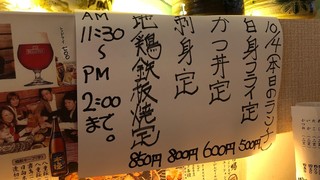 10/4(本日のランチ)
白身フライ定 500円
かつ丼定 600円
刺身定 800円
地鶏鉄板焼定 850円
AM 11:30～PM 2:00まで。